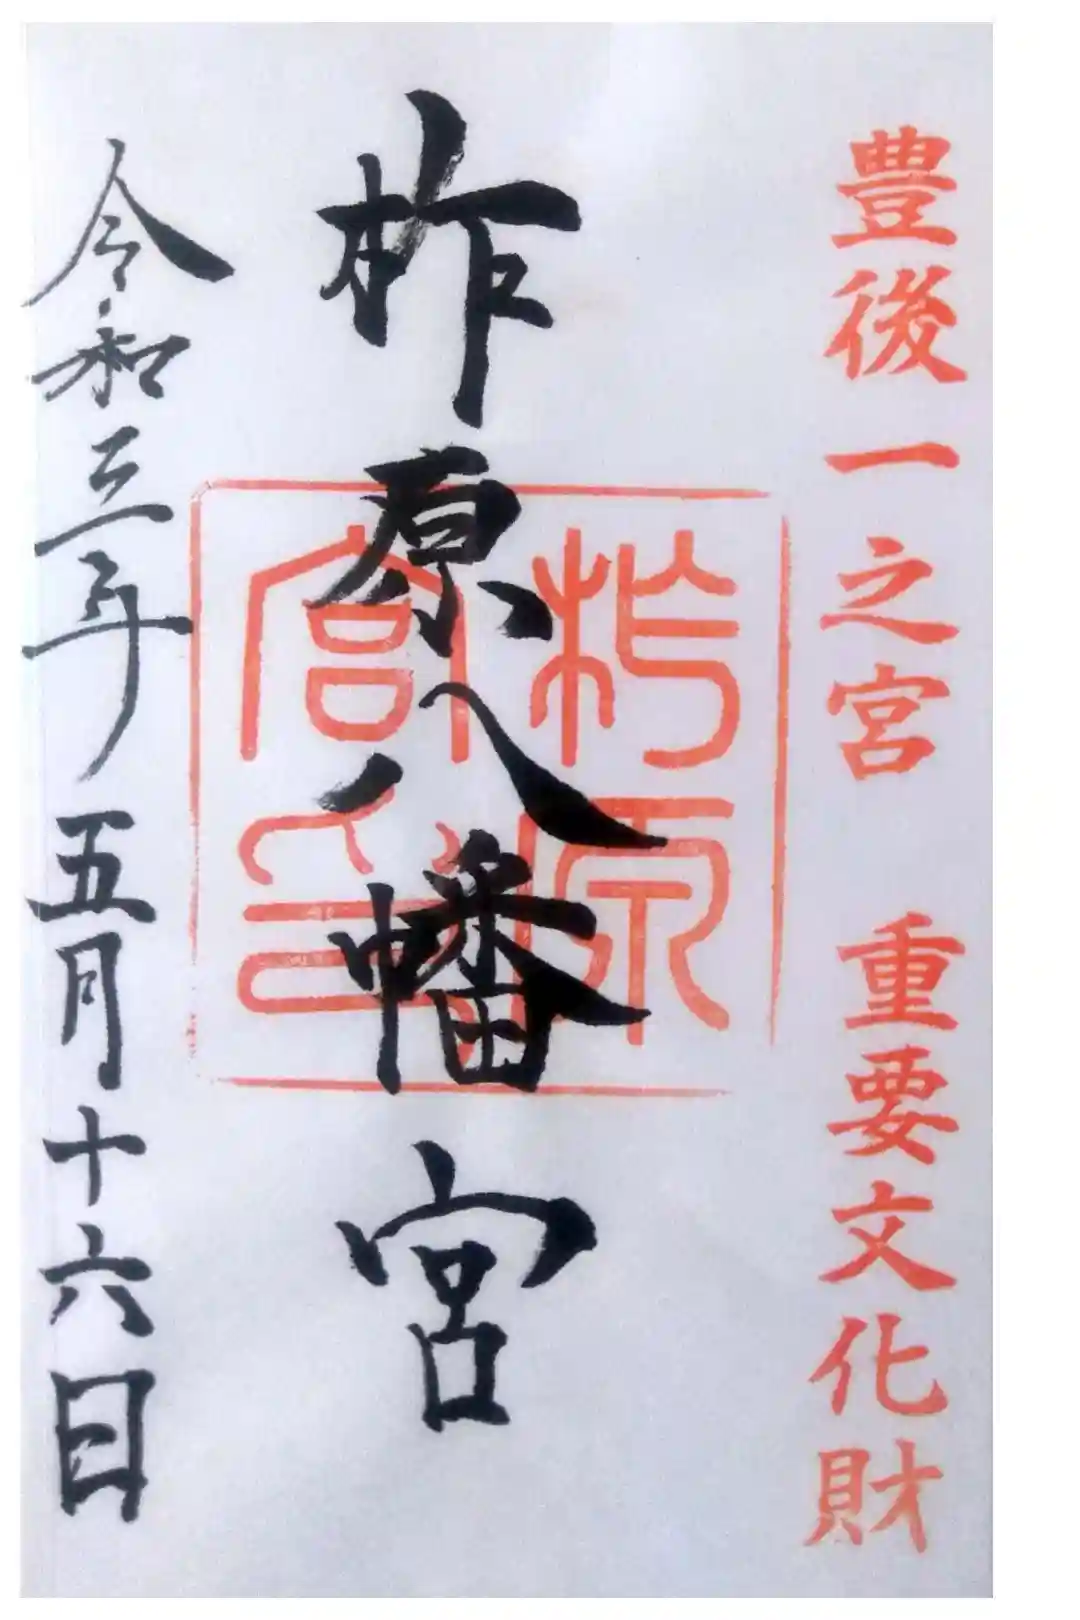 豊後一之宮 重要文化財
柞原八幡宮
柞原
宮印
令和三年五月十六日